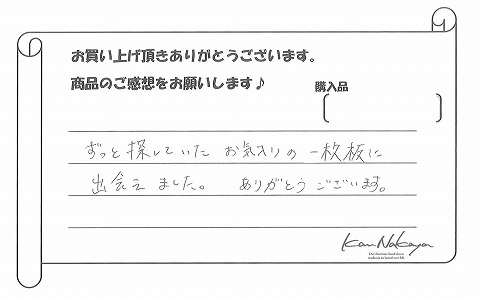 お買い上げ頂きありがとうございます。
商品のご感想をお願いします♪
購入品
ずっと探していた お気入りの一枚板に
出会えました。 ありがとうございます。
KanNakaya